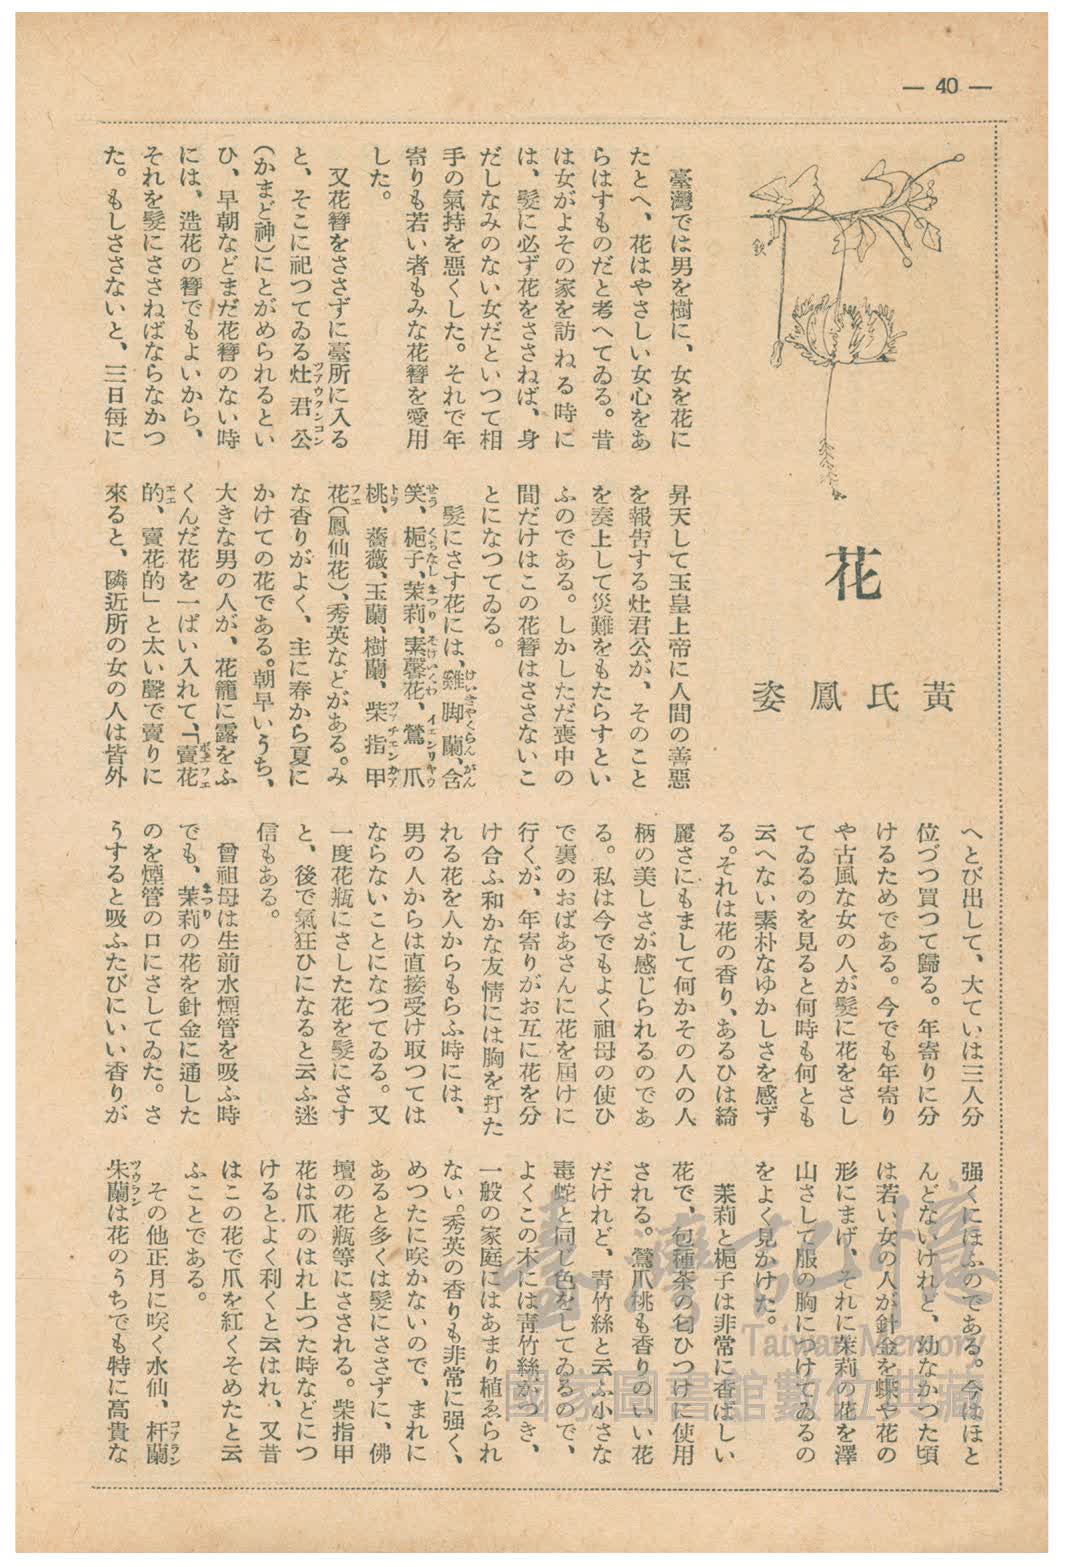 — 40 —
花
黃氏鳳姿
臺灣では男を樹に、女を花に
たとへ、花はやさしい女心をあ
らはすものだと考へてゐる。昔
は女がよその家を訪ねる時に
は、髮に必ず花をささねば、身
だしなみのない女だといつて相
手の氣持を惡くした。それで年
寄りも若い者もみな花簪を愛用
した。
又花簪をささずに臺所に入る
と、そこに祀つてゐる灶君公
(かまど神)にとがめられるとい
ひ、早朝などまだ花簪のない時
には、造花の簪でもよいから、
それを髮にささねばならなかつ
た。もしささないと、三日每に
昇天して玉皇上帝に人間の善惡
を報告する灶君公が、そのこと
を奏上して災難をもたらすとい
ふのである。しかしただ喪中の
間だけはこの花簪はささないこ
とになつてゐる。
髮にさす花には、雞脚蘭、含
笑、梔子、茉莉、素馨花、鶯爪
桃、薔薇、玉蘭、樹蘭、柴指甲
花(鳳仙花)、秀英などがある。み
な香りがよく、主に春から夏に
かけての花である。朝早いうち、
大きな男の人が、花籠に露をふ
くんだ花を一ぱい入れて、「賣花
的、賣花的」と太い聲で賣りに
來ると、隣近所の女の人は皆外
へとび出して、大ていは三人分
位づつ買つて歸る。年寄りに分
けるためである。今でも年寄り
や古風な女の人が髮に花をさし
てゐるのを見ると何時も何とも
云へない素朴なゆかしさを感ず
る。それは花の香り、あるひは綺
麗さにもまして何かその人の人
柄の美しさが感じられるのであ
る。私は今でもよく祖母の使ひ
で裏のおばあさんに花を屆けに
行くが、年寄りがお互に花を分
け合ふ和かな友情には胸を打た
れる花を人からもらふ時には、
男の人からは直接受け取つては
ならないことになつてゐる。又
一度花瓶にさした花を髮にさす
と、後で氣狂ひになると云ふ迷
信もある。
曾祖母は生前水煙管を吸ふ時
でも、茉莉の花を針金に通した
のを煙管の口にさしてゐた。さ
うすると吸ふたびにいい香りが
强くにほふのである。今はほと
んどないけれど、幼なかつた頃
は若い女の人が針金を蝶や花の
形にまげ、それに茉莉の花を澤
山さして服の胸につけてゐるの
をよく見かけた。
茉莉と梔子は非常に香ばしい
花で、包種茶の匂ひつけに使用
される。鶯爪桃も香りのいい花
だけれど、青竹絲と云ふ小さな
毒蛇と同じ色をしてゐるので、
よくこの木には青竹絲がつき、
一般の家庭にはあまり植ゑられ
ない。秀英の香りも非常に强く、
めつたに咲かないので、まれに
あると多くは髮にささずに、佛
壇の花瓶等にさされる。柴指甲
花は爪のはれ上つた時などにつ
けるとよく利くと云はれ、又昔
はこの花で爪を紅くそめたと云
ふことである。
その他正月に咲く水仙、杆蘭
朱蘭は花のうちでも特に高貴な
臺灣記憶
Taiwan Memory
國家圖書館數位典藏